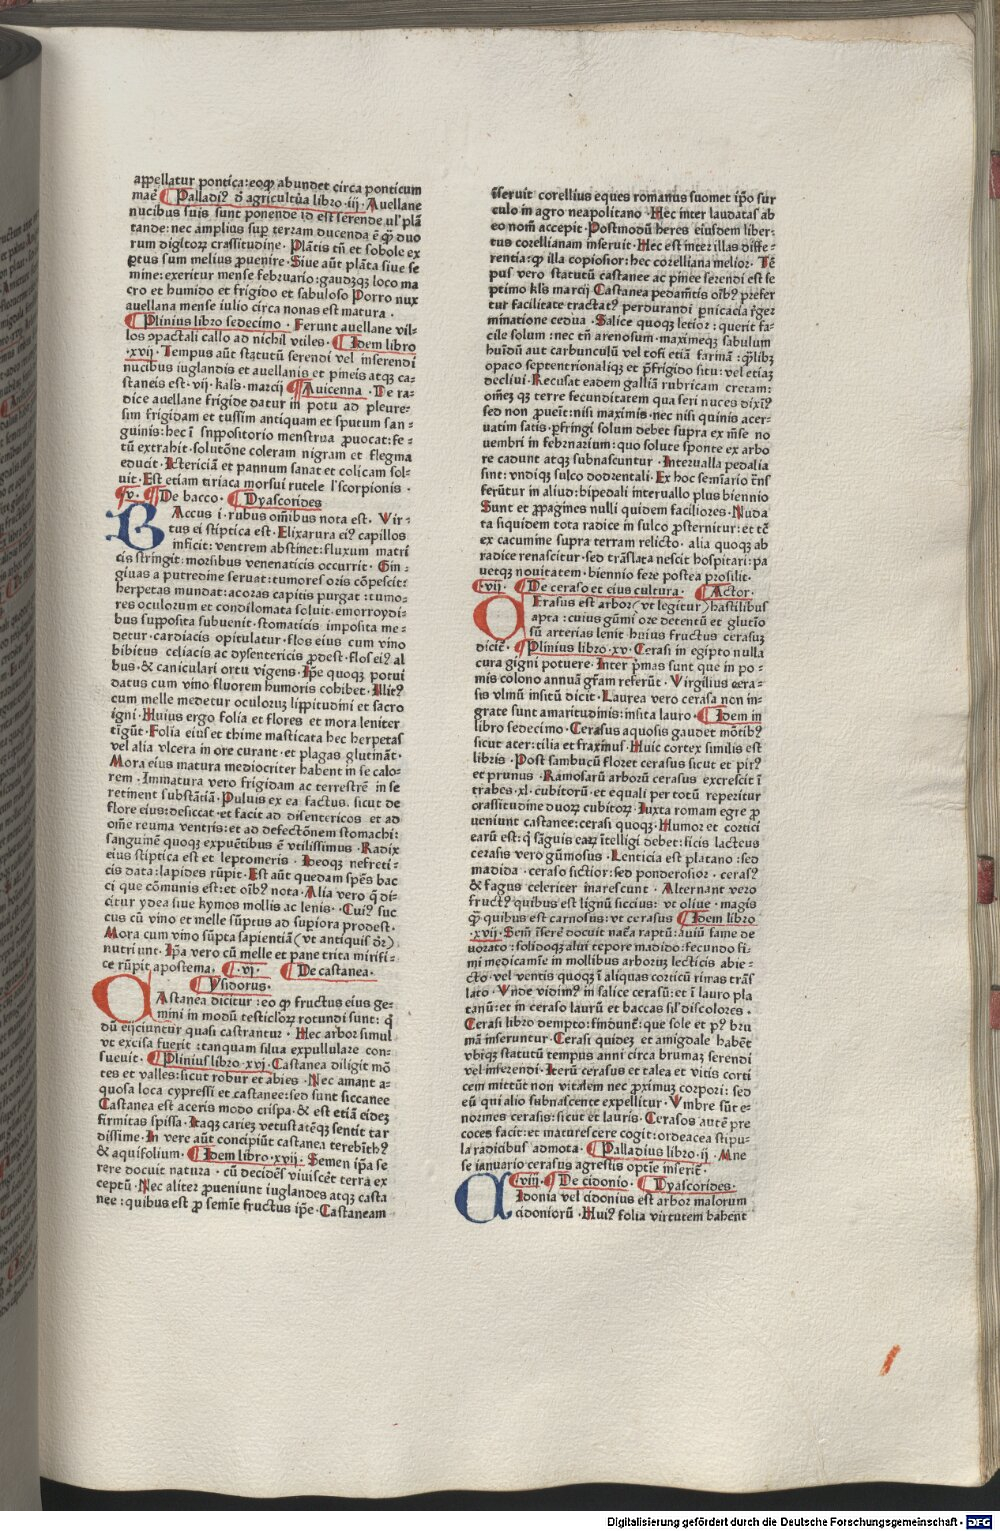 appellatur pontica: eoqꝫ abundet circa ponticum
mare ¶ Palladiꝰ d̄ agricultũa libro·iij· Auellane
nucibus suis sunt ponende id est serende ul' plā
tande: nec amplius sup̱ terram ducenda ē qꝫ duo
rum digitoꝝ crassitudine· Plātis tñ et sobole ex
p̱tus sum melius ꝓuenire· Siue aūt plāta siue se
mine: exeritur mense februario: gaudꝫqꝫ loco ma
cro et humido et frigido et sabuloso Porro nux
auellana mense iulio circa nonas est matura·
¶ Plinius libro sedecimo· Ferunt auellane vil-
los ꝯpactali callo ad nichil vtiles· ¶ Idem libro
·xvij· Tempus aūt statutū serendi vel inserendi
nucibus iuglandis et auellanis et pineis atqꝫ ca-
staneis est·vij·kals·marcij ¶ Auicenna· De ra-
dice auellane frigide datur in potu ad pleure-
sim frigidam et tussim antiquam et sputum san-
guinis: hec ī snppositorio menstrua ꝓuocat: fe-
tū extrahit·solutōne coleram nigram et flegma
educit· Ictericiā et pannum sanat et colicam sol-
uit· Est etiam tiriaca morsui rutele l' scorpionis·
¶v· ¶ De bacco· ¶ Dyascorides
BAccus i·rubus om̄ibus nota est· Vir-
tus ei stiptica est· Elixatura eiꝰ capillos
inficit: ventrem abstinet: fluxum matri
cis stringit: morsibus venenaticis occurrit· Gin-
giuas a putredine seruat: tumores oris cōpescit:
herpetas mundat: acoras capitis purgat: tumo-
res oculorum et condilomata soluit·emorroydi-
bus supposita subuenit·stomaticis imposita me-
detur·cardiacis opitulatur·flos eius cum vino
bibitus celiacis ac dysentericis ꝓdest·flos eiꝰ al
bus·& caniculari ortu vigens· Ip̄e quoqꝫ potui
datus cum vino fluorem humoris cohibet· Illitꝰ
cum melle medetur oculoꝝ lippitudini et sacro
igni· Huius ergo folia et flores et mora leniter
tigūt· Folia eius et thime masticata hec herpetas
vel alia vlcera in ore curant·et plagas glutināt·
Mora eius matura mediocriter habent in se calo-
rem· Immatura vero frigidam ac terrestrē in se
retinent substātiā· Puluis ex ea factus·sicut de
flore eius: desiccat·et facit ad disentericos et ad
om̄e reuma ventris: et ad defectōnem stomachi:
sanguinē quoqꝫ expuētibus ē vtilissimus· Radix
eius stiptica est et leptomeris· Ideoqꝫ nefreti-
cis data: lapides rūpit· Est aūt quedam sp̄es bac
ci que cōmunis est: et oībꝰ nota· Alia vero q̄ di-
citur ydea siue kymos mollis ac lenis· Cuiꝰ suc
cus cū vino et melle sūptus ad supiora prodest·
Mora cum vino sūpta sapientiā (vt antiqui dr̄)
nutriunt· Ip̄a vero cū melle et pane trita mirifi-
ce rūpit apostema· ¶·vj· ¶ De castanea·
¶ Ysidorus·
CAstanea dicitur: eo qꝫ fructus eius ge-
mini in modū testicloꝝ rotundi sunt: q̄
dū eijciuntur quasi castrantur· Hec arbor simul
vt excisa fuerit: tanquam silua expullulare con-
sueuit· ¶ Plinius libro·xvj· Castanea diligit mō
tes et valles: sicut robur et abies· Nec amant a-
quosa loca cypressi et castanee: sed sunt siccanee
Castanea est aceris modo crispa·& est etiā eideꝫ
firmitas spissa· Itaqꝫ carieꝫ vetustatēqꝫ sentit tar
dissime· In vere aūt concipiūt castanea terebīthꝰ
& aquifolium· ¶ Idem libro·xvij· Semen ip̄a se
rere docuit natura·cū decidēs viuiscēt terra ex
ceptū· Nec aliteꝛ ꝓueniunt iuglandes atqꝫ casta
nee: quibus est ꝓ semīe fructus ip̄e· Castaneam
īseruit corellius eques romanus suomet ip̄o sur
culo in agro neapolitano· Hec inter laudatas ab
eo nom̄ accepit· Postmodū heres eiusdem liber-
tus corellianam inseruit· Hec est inter illas diffe-
rentia: qꝫ illa copiosior: hec corelliana melior· Tē
pus vero statutū castanee ac p̄ince serendi est se
ptimo kl̄s marcij Castanea pedam̄tis oībꝰ prefer
tur facilitate tractatꝰ perdurandi p̱nicacia r̄ger
minatione cedua· Salice quoqꝫ letior: querit fa-
cile solum: nec tn̄ arenosum·maximeqꝫ sabulum
huīdū aut carbunculū vel tofi etiā farinā: qꝫlibꝫ
opaco septentrionaliqꝫ et p̄frigido situ: vel etiaꝫ
decliui· Recusat eadem galliā rubricam cretam:
om̄eꝫ qꝫ terre fecunditatem qua seri nuces dixīꝰ
sed non ꝓueīt: nisi maximis·nec nisi quinis acer-
uatim satis·p̱fringi solum debet supra ex m̄se no
uembri in februarium: quo solute sponte ex arbo
re cadunt atqꝫ subnascuntur· Interualla pedalia
sint: vndiqꝫ sulco dodrentali· Ex hoc semīario tn̄s
ferūtur in aliud: bipedali interuallo plus biennio
Sunt et ꝓpagines nulli quidem faciliores· Nuda
ta siquidem tota radice in sulco ꝓsternitur: et tē
ex cacumine supra terram relicto·alia quoqꝫ ab
radice renascitur·sed trāslata nescit hospitari: pa
uetqꝫ nouitatem·biennio fere postea prosilit·
¶·vij· ¶ De ceraso et eius cultura· ¶ Actor·
CErasus est arbor (vt legitur) hastilibus
apta: cuius gūmi oze detentū et glutīo
sū arterias lenit huius fructus cerasuꝫ
dicit̄· ¶ Plinius libro·xv· Cerasi in egipto nulla
cura gigni potuere· Inter p̄mas sunt que in po-
mis colono annuā gr̄am referūt· Virgilius cera-
sis vlmū insitū dicit· Laurea vero cerasa non in-
grate sunt amaritudinis: insita lauro· ¶ Idem in
libro sedecimo· Cerasus aquosis gaudet mōtibꝰ
sicut acer: tilia et fraxinus· Huic cortex similis est
libris· Post sambucū floret cerasus sicut et pirꝰ
et prunus· Ramosaꝝ arborū cerasus excrescit ī
trabes·xl·cubitorū·et equali per totū reperitur
crassitudine duoꝝ cubitoꝝ· Iuxta romam egre ꝓ
ueniunt castanee: cerasi quoqꝫ· Humor et cortici
earū est: q̄ sāguis eaꝝ ītelligi debet: ficis lacteus
cerasis vero gūmosus· Lenticia est platano: sed
madida·ceraso fictior: sed ponderosior·cerasꝰ
& fagus celeriter inarescunt· Alternant vero
fructꝰ quibus est lignū siccius: vt oliue·magis
qꝫ quibus est carnosus: vt cerasus ¶ Idem libro
·xvij· Semē īsere docuit nat̄a raptū: auiū fame de
uorato: solidoqꝫ alui tepore madido: fecundo fi-
mi medicamīe in mollibus arboꝝ lecticis abie-
cto·vel ventis quoqꝫ ī aliquas corticū rimas trās
lato· Vnde vidimꝰ in salice cerasū: et ī lauro pla
tanū: et in ceraso laurū et baccas sil' discolores·
Cerasi libro dempto: findunt̄: que sole et pꝰ bru
mā inseruntur· Cerasi quideꝫ et amigdale habēt
vbiqꝫ statutū tempus anni circa brumaꝫ serendi
vel inserendi· Iterū cerasus et talea et vitis corti
cem mittūt non vitalem nec ꝓximuꝫ corpori: sed
eū qui alio subnascente expellitur· Vmbre sūt e-
normes cerasis: sicut et lauris· Cerasos autē pre
coces facit: et maturescere cogit: ordeacea stipu-
la radicibus admota· ¶ Palladius libro·ij· Mne
se ianuario cerasus agrestis optīe inserit̄·
¶·viij· ¶ De cidonio· ¶ Dyascorides·
CIdonia vel cidonius est arbor malorum
cidoniorū· Huiꝰ folia virtutem habent
Digitalisierung gefördert durch die Deutsche Forschungsgemeinschaft - DFG